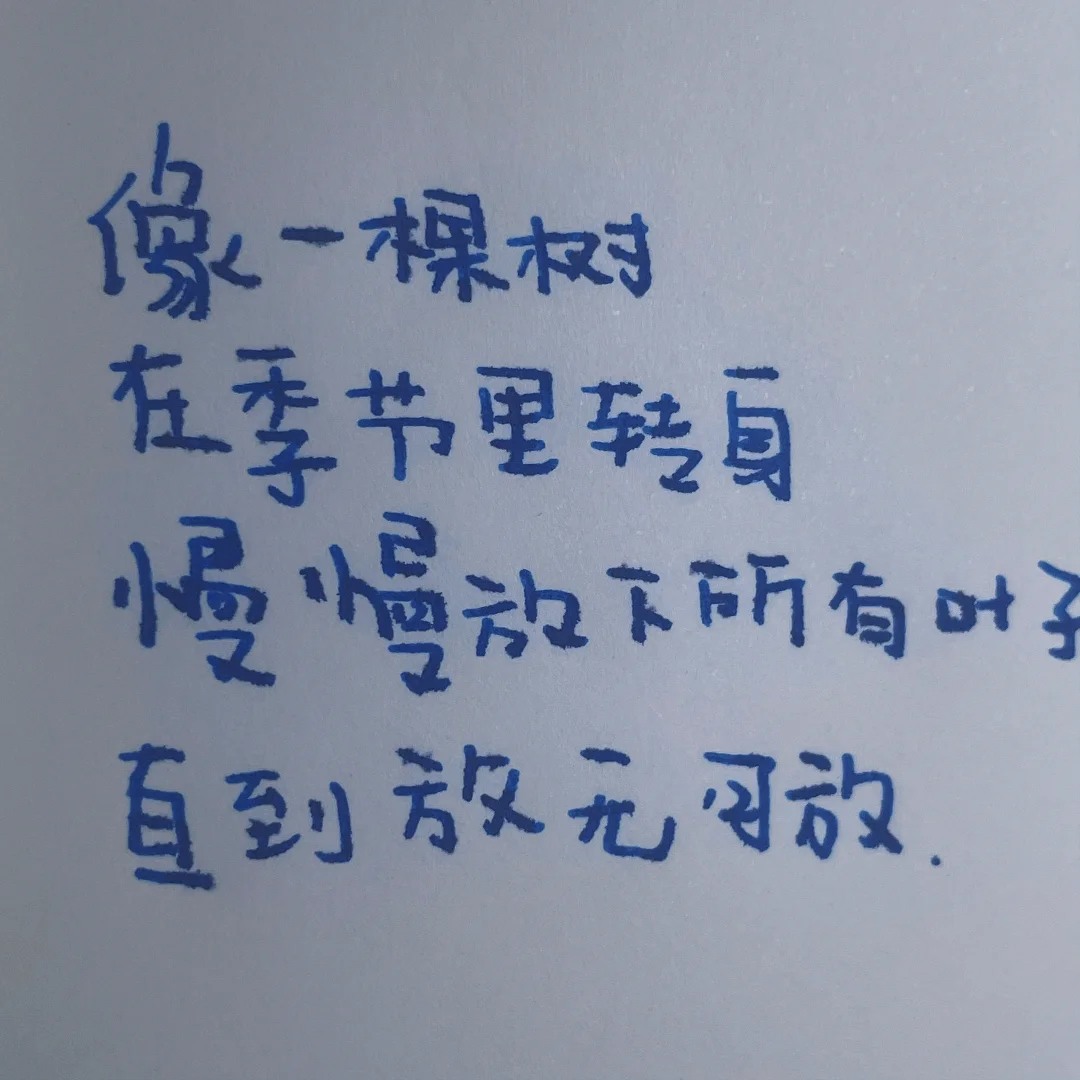 像一棵树
在季节里转身
慢慢放下所有叶子
直到放无可放.